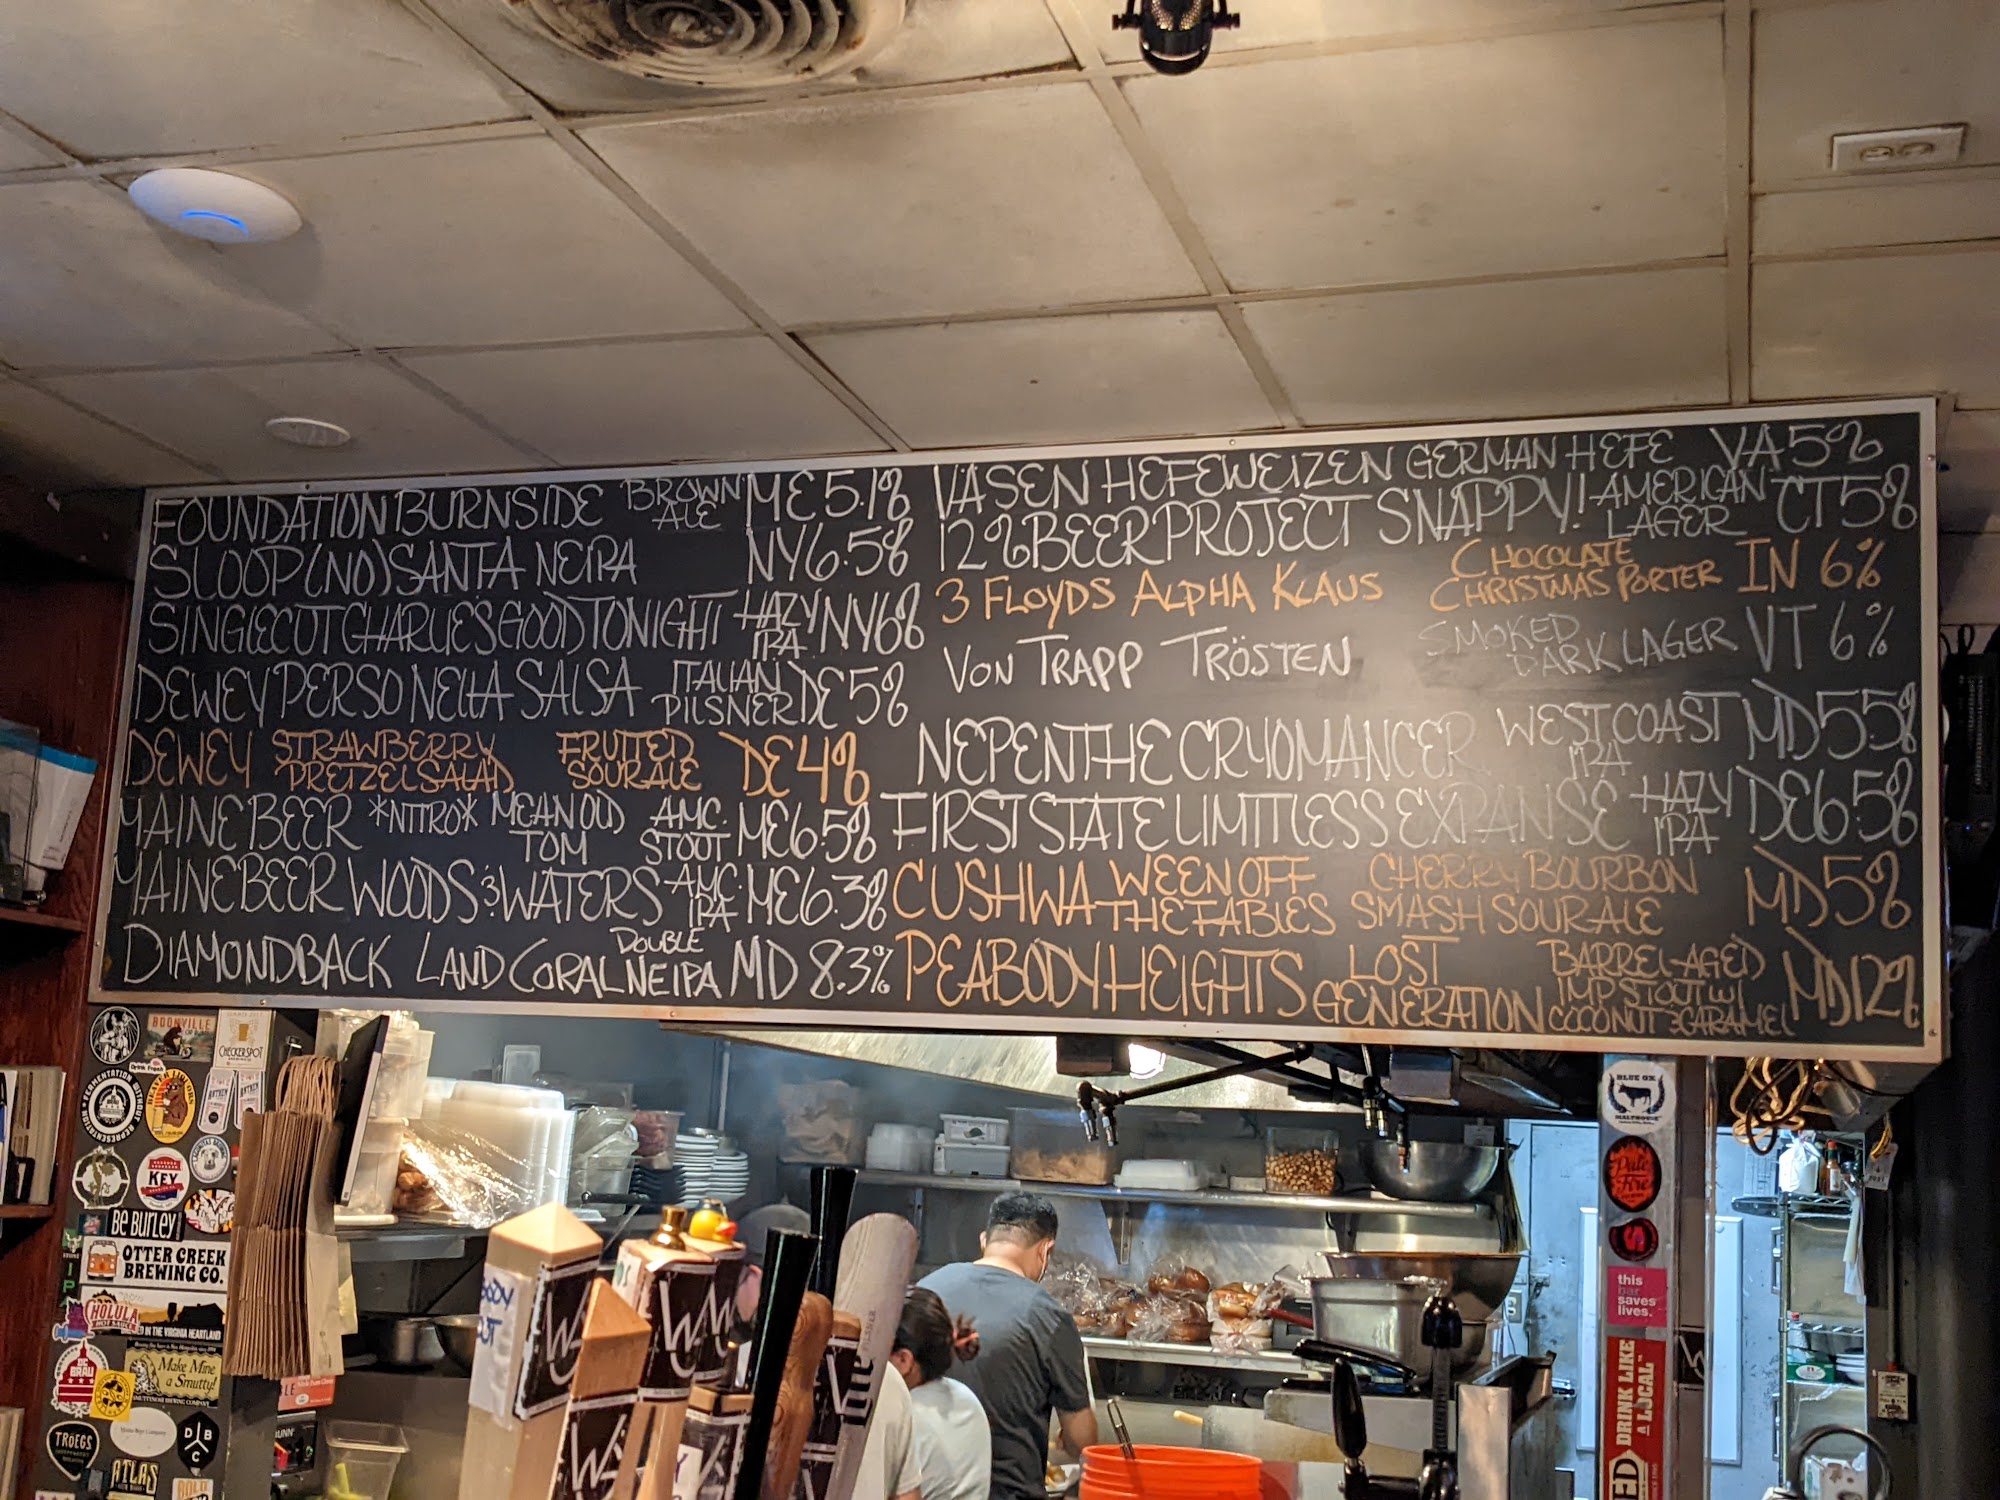 FOUNDATION BURNSIDE BROWN ALE ME 5.1%
SLOOP (NO) SANTA NEIPA NY 6.5%
SINGLECUT CHARLIE'S GOOD TONIGHT HAZY IPA NY 6%
DEWEY PERSONELLA SALSA ITALIAN PILSNER DE 5%
DEWEY STRAWBERRY PRETZEL SALAD FRUITED SOUR ALE DE 4%
MAINE BEER *NITRO* MEAN OLD TOM AMC. STOUT ME 6.5%
MAINE BEER WOODS & WATERS AMC. IPA ME 6.3%
DIAMONDBACK LAND CORAL DOUBLE NEIPA MD 8.3%
VÄSEN HEFEWEIZEN GERMAN HEFE VA 5%
12% BEER PROJECT SNAPPY! AMERICAN LAGER CT 5%
3 FLOYDS ALPHA KLAUS CHOCOLATE CHRISTMAS PORTER IN 6%
VON TRAPP TRÖSTEN SMOKED DARK LAGER VT 6%
NEPENTHE CRYOMANCER WEST COAST IPA MD 5.5%
FIRST STATE LIMITLESS EXPANSE HAZY IPA DE 6.5%
CUSHWA WEEN OFF THE FABLES CHERRY BOURBON SMASH SOUR ALE MD 5%
PEABODY HEIGHTS LOST GENERATION BARREL-AGED IMP STOUT W/ COCONUT & CARAMEL MD 12%
BOONVILLE
CHECKERSPOT
FERMENTATION WITHOUT REPRESENTATION
KEY
BE BURLEY
OTTER CREEK
BREWING CO.
CHOLULA
HOT SAUCE
IN THE VIRGINIA HEARTLAND
DC
BRAU
Make Mine
a Smutty!
TRÖEGS
D B
C
ATLAS
BLUE OX
MALTHOUSE
Pale
Fire
this
bar
saves
lives.
DRINK LIKE
A LOCAL